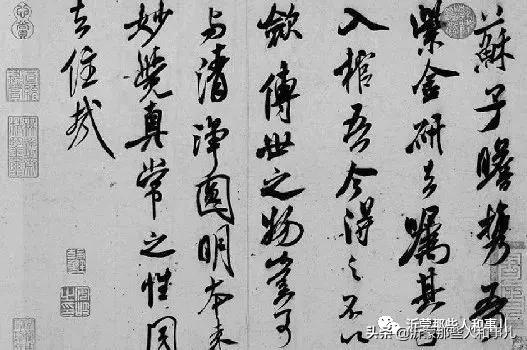 蘇子瞻携吾
紫金研去嘱其子
入棺吾今得之不以
斂傳世之物豈可
与清淨圓明本来
妙覺真常之性同
去住哉
沂蒙那些人和事儿
头条 @沂蒙那些人和事儿